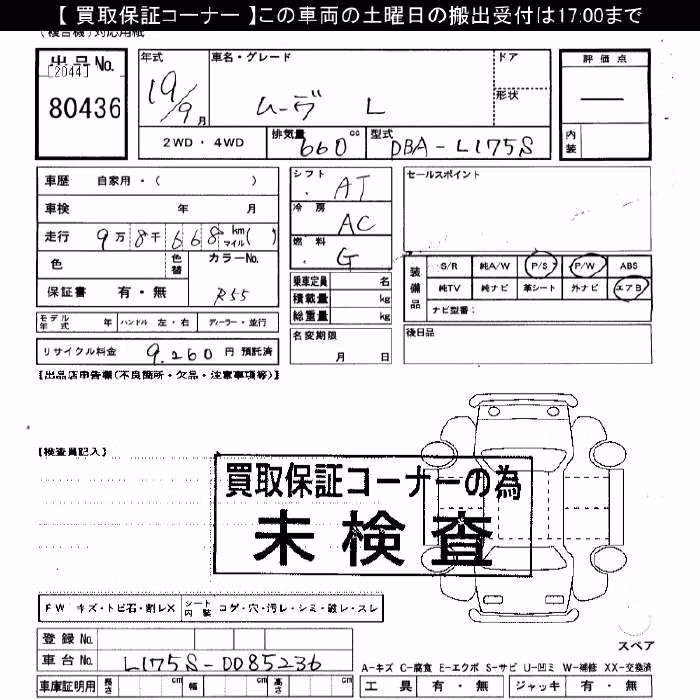 【 買取保証コーナー 】この車両の土曜日の搬出受付は17:00まで
(複合機)対応用紙
出品No. 年式 車名・グレード ドア 評価点
[2044]
80436 19/9月 ムーヴ L 形状 —
2WD・4WD 排気量 660 cc 型式 DBA-L175S 内装
車歴 自家用・( ) シフト AT セールスポイント
車検 年 月 冷房 AC
走行 9万8千668 km マイル ( ) 燃料 G
色 色替 カラーNo. 装備品 S/R 純A/W P/S P/W ABS
保証書 有・無 R55 乗車定員 名 純TV 純ナビ 革シート 外ナビ エアB
積載量 kg ナビ型番:
総重量 kg
モデル年式 年 ハンドル 左・右 ディーラー・並行 名変期限 月 日 後日品
リサイクル料金 9,260 円 預託済
【出品店申告欄(不良箇所・欠品・注意事項等)】
【検査員記入】
買取保証コーナーの為
未検査
FW キズ・トビ石・割レX シート内装 コゲ・穴・汚レ・シミ・破レ・スレ
登録No. スペア
車台No. L175S-0085236 A-キズ C-腐食 E-エクボ S-サビ U-凹ミ W-補修 XX-交換済
車庫証明用 長さ cm 幅 cm 高さ cm 工具 有・無 ジャッキ 有・無